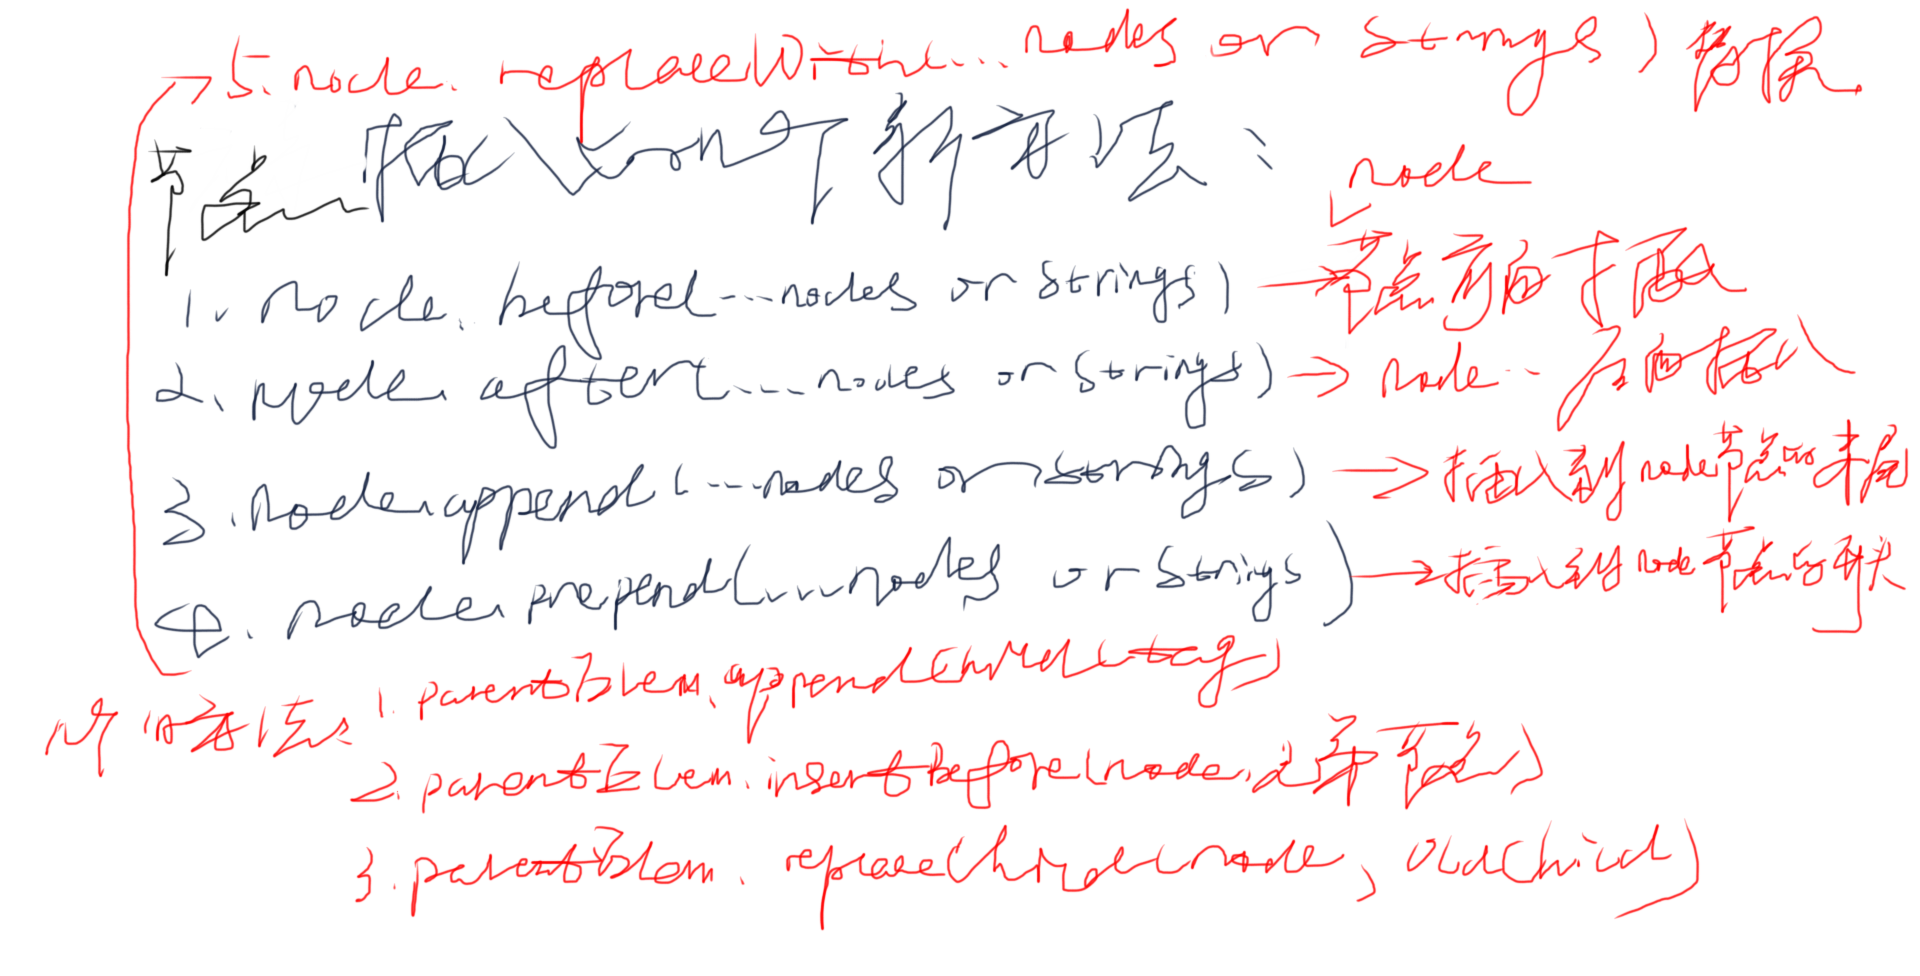 5. node. replaceWith(...nodes or strings) 替换
节点插入 新方法:
node
1. node. before(...nodes or strings) → 节点前面插入
2. node. after(...nodes or strings) → node.. 后面插入
3. node.append(...nodes or strings) → 插入到node节点的末尾
4. node.prepend(...nodes or strings) → 插入到node节点的开头
旧方法: 1. parentElem.appendChild(tag)
2. parentElem.insertBefore(node, 兄弟节点)
3. parentElem.replaceChild(node, oldChild)